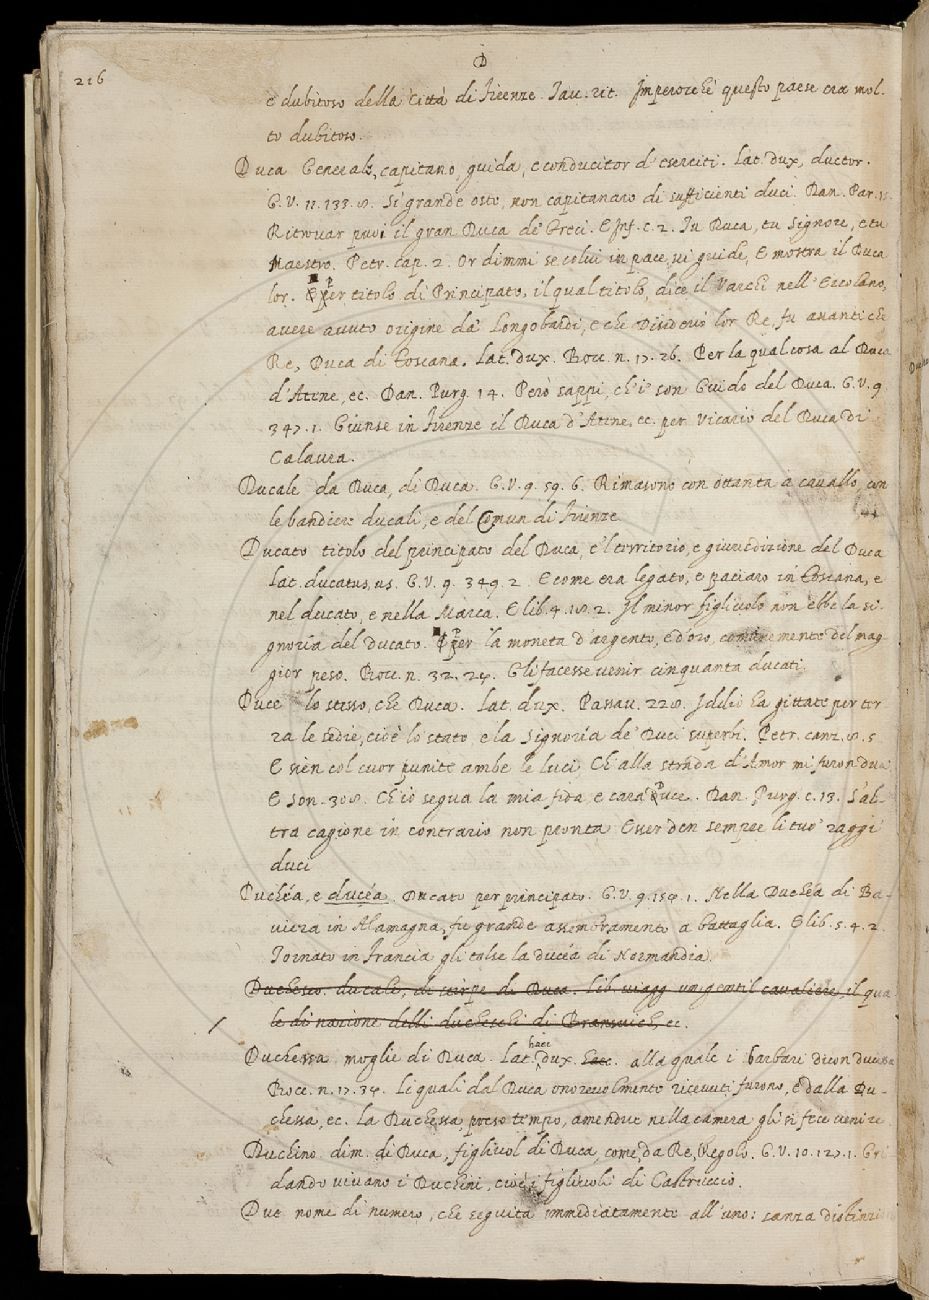 216
D
e dubitoso della Città di Firenze. Tav. rit. Imperocchè questo paese era mol-
to dubitoso.
Duca Generale, capitano, guida, e conducitor d'eserciti. Lat. dux, ductor.
G.V. 11. 133. 8. Sì grande oste, non capitanaro di sufficienti duci. Dan. Par. 15.
Ritrovar puoi il gran Duca de' Greci. E Inf. c. 2. Tu Duca, tu Signore, e tu
Maestro. Petr. cap. 2. Or dimmi se colui in pace vi guide, E mostra il Duca
lor. Per titolo di Principato, il qual titolo, dice il Varchi nell'Ercolano,
avere avuto origine da' Longobardi, e che Disiderio lor Re, fu avanti che
Re, Duca di Toscana. Lat. dux. Bocc. n. 17. 26. Per la qual cosa al Duca
d'Atene, ec. Dan. Purg. 14. Però sappi, ch'i' son Guido del Duca. G.V. 9
347. 1. Giunse in Firenze il Duca d'Atene, ec. per Vicario del Duca di
Calavra.
Ducale da Duca, di Duca. G.V. 9. 59. 6. Rimasono con ottanta a cavallo, con
le bandiere ducali, e del Comun di Firenze
Ducato titolo del principato del Duca, e 'l territorio, e giurisdizione del Duca
Lat. ducatus, us. G.V. 9. 349. 2. E come era legato, e paciaro in Toscana, e
nel ducato, e nella Marca. E lib. 4. 18. 2. Il minor figliuolo non ebbe la si-
gnoria del ducato. Per la moneta d'argento, e d'oro, comunemente del mag-
gior peso. Bocc. n. 32. 24. Gli facesse venir cinquanta ducati.
Duce lo stesso, che Duca. Lat. dux. Passav. 228. Iddio ha gittate per ter-
ra le sedie, cioè lo stato, e la Signoria de' Duci superbi. Petr. canz. 8. 5
E sien col cuor punite ambe le luci, Ch'alla strada d'Amor mi furon duci
E son. 308. Ch'io segua la mia fida, e cara Duce. Dan. Purg. c. 13. S'al-
tra cagione in contrario non pronta Esser den sempre li tuo' raggi
duci
Duchéa, e ducéa. Ducato per principato. G.V. 9. 159. 1. Nella Duchéa di Ba-
viera in Alamagna, fu grande assembramento a battaglia. E lib. 5. 4. 2.
Tornato in Francia gli tolse la ducéa di Normandia.
Duchesco. ducale, di stirpe di Duca. lib. viagg un gentil cavaliere, il qua-
le di nazione delli ducheschi di Bransvich, ec.
Duchessa moglie di Duca. Lat. haec dux. haec. alla quale i barbari dicon ducissa
Bocc. n. 17. 34. Li quali dal Duca onorevolmente ricevuti furono, e dalla Du-
chessa, ec. La Duchessa, preso tempo, amendue nella camera gli si fece venire
Duchino dim. di Duca, figliuol di Duca, come, da Re, Regolo. G.V. 10. 127. 1. Gri
dando vivano i Duchini, cioè i figliuoli di Castruccio.
Due nome di numero, che seguita immediatamente all'uno: sanza distinzi